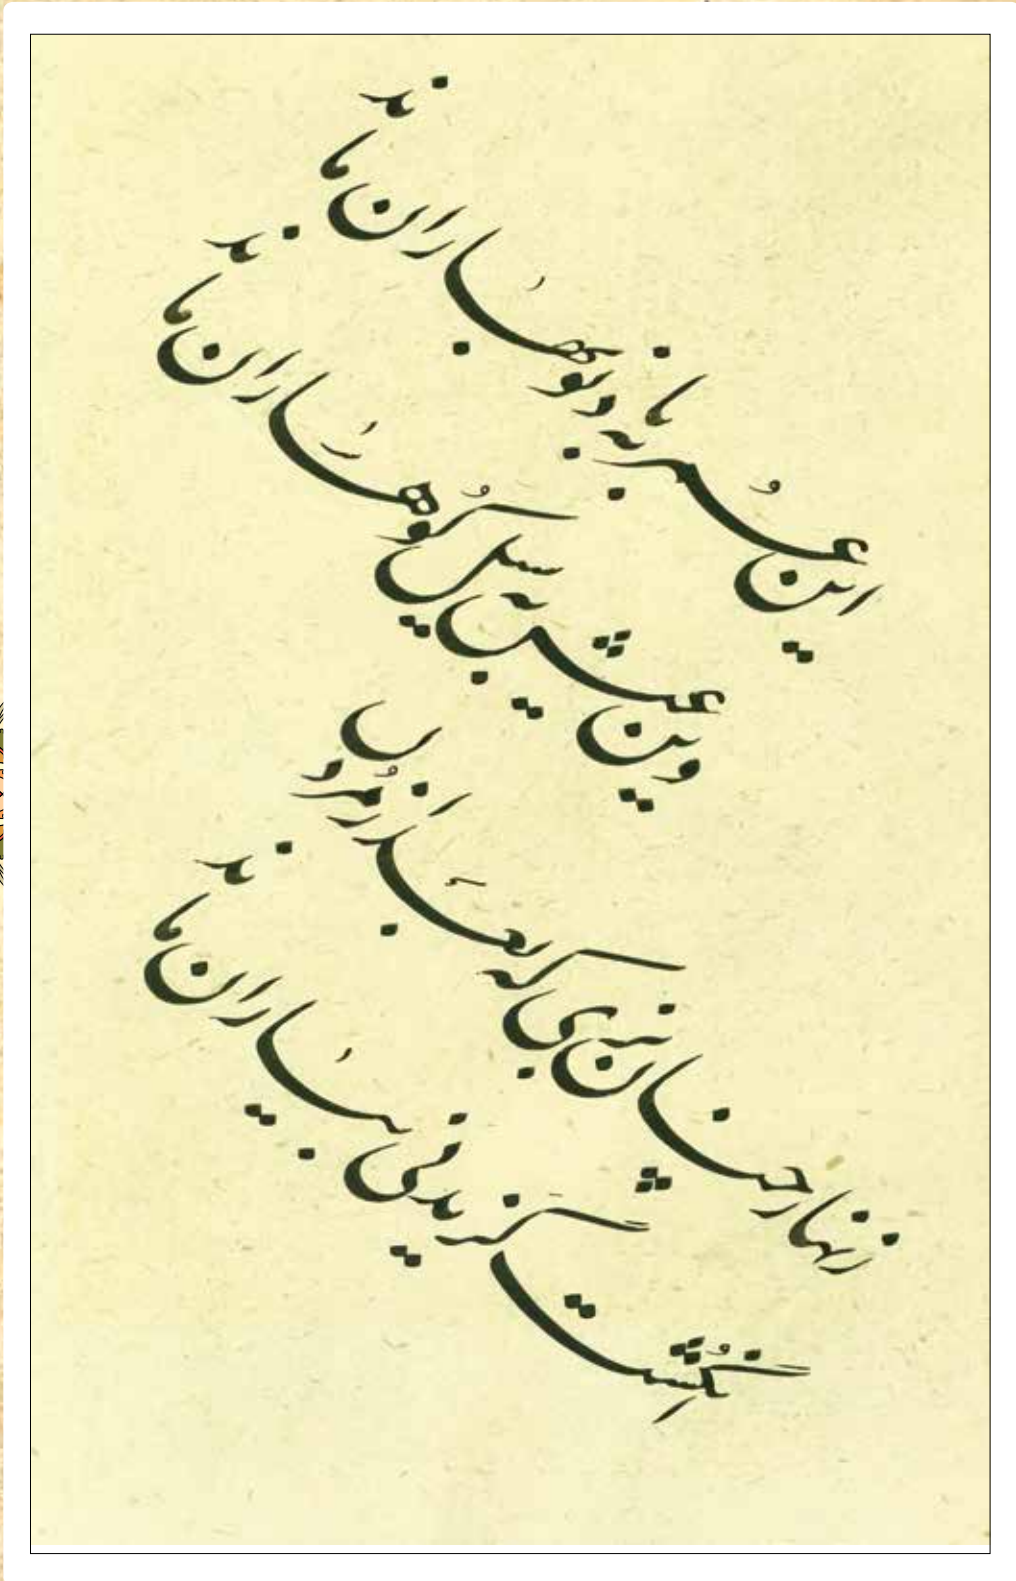 این عمر به باد نوبهاران ماند
وین عیش به سیل کوهساران ماند
زنهار چنان بزی که بعد از مُردن
انگُشت گزیدنی بیاران ماند